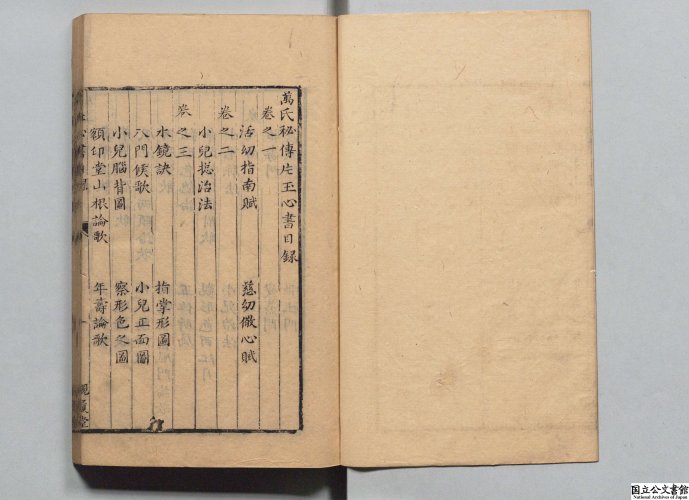 萬氏秘傳片玉心書目錄
卷之一
活幼指南賦 慈幼儆心賦
卷之二
小兒總治法
卷之三
水鏡訣 指掌形圖
入門候歌 小兒正面圖
小兒腦背圖 察形色冬圖
額印堂山根論歌 年壽論歌
国立公文書館
National Archives of Japan